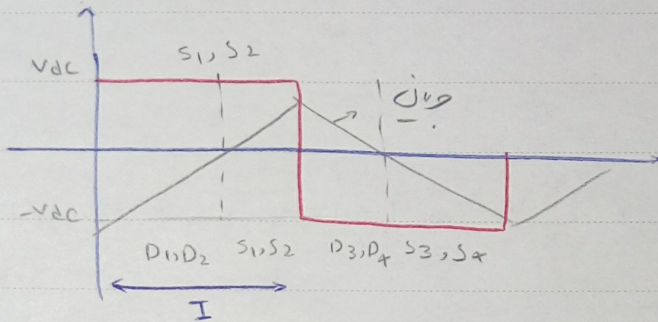 S1, S2
Vdc
جریان
-Vdc
D1,D2 S1,S2 D3,D4 S3,S4
I